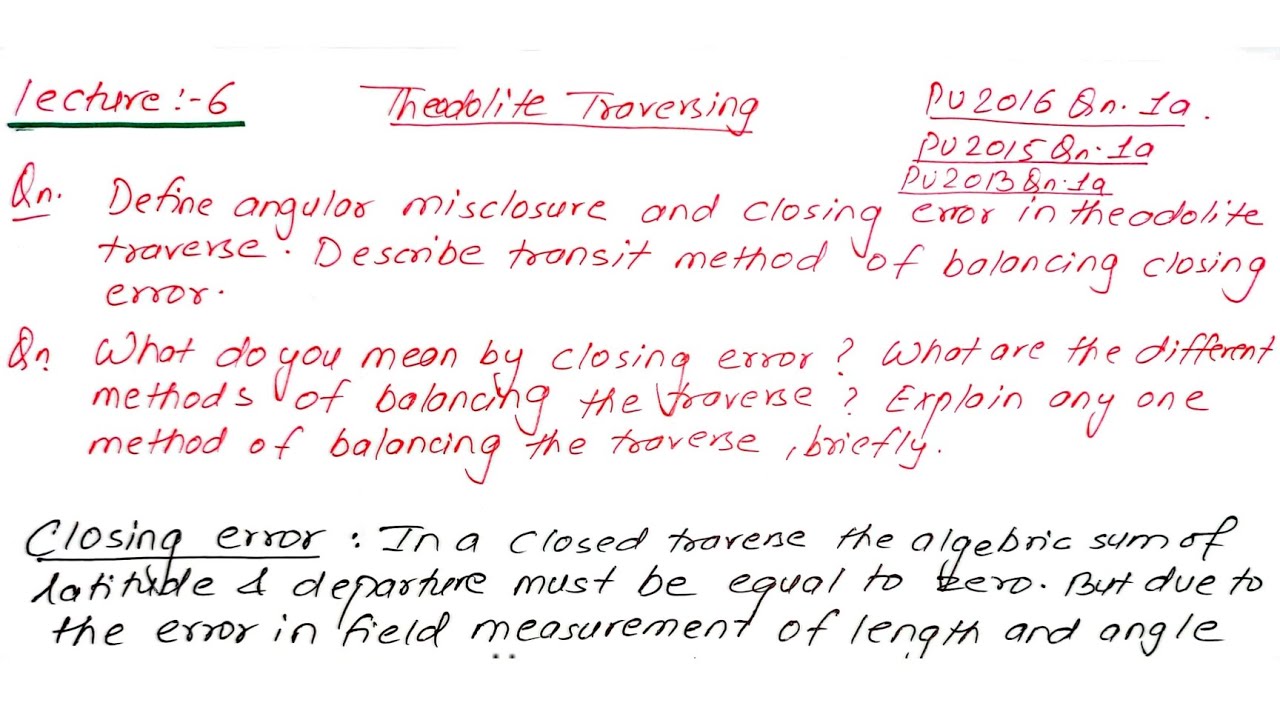 Lecture:-6 Theodolite Traversing PU 2016 Qn. 1a.
PU 2015 Qn. 1a
PU 2013 Qn. 1a
Qn. Define angular misclosure and closing error in theodolite
traverse. Describe transit method of balancing closing
error.
Qn. What do you mean by closing error? What are the different
methods of balancing the traverse? Explain any one
method of balancing the traverse, briefly.
Closing error: In a closed traverse the algebric sum of
latitude & departure must be equal to zero. But due to
the error in field measurement of length and angle